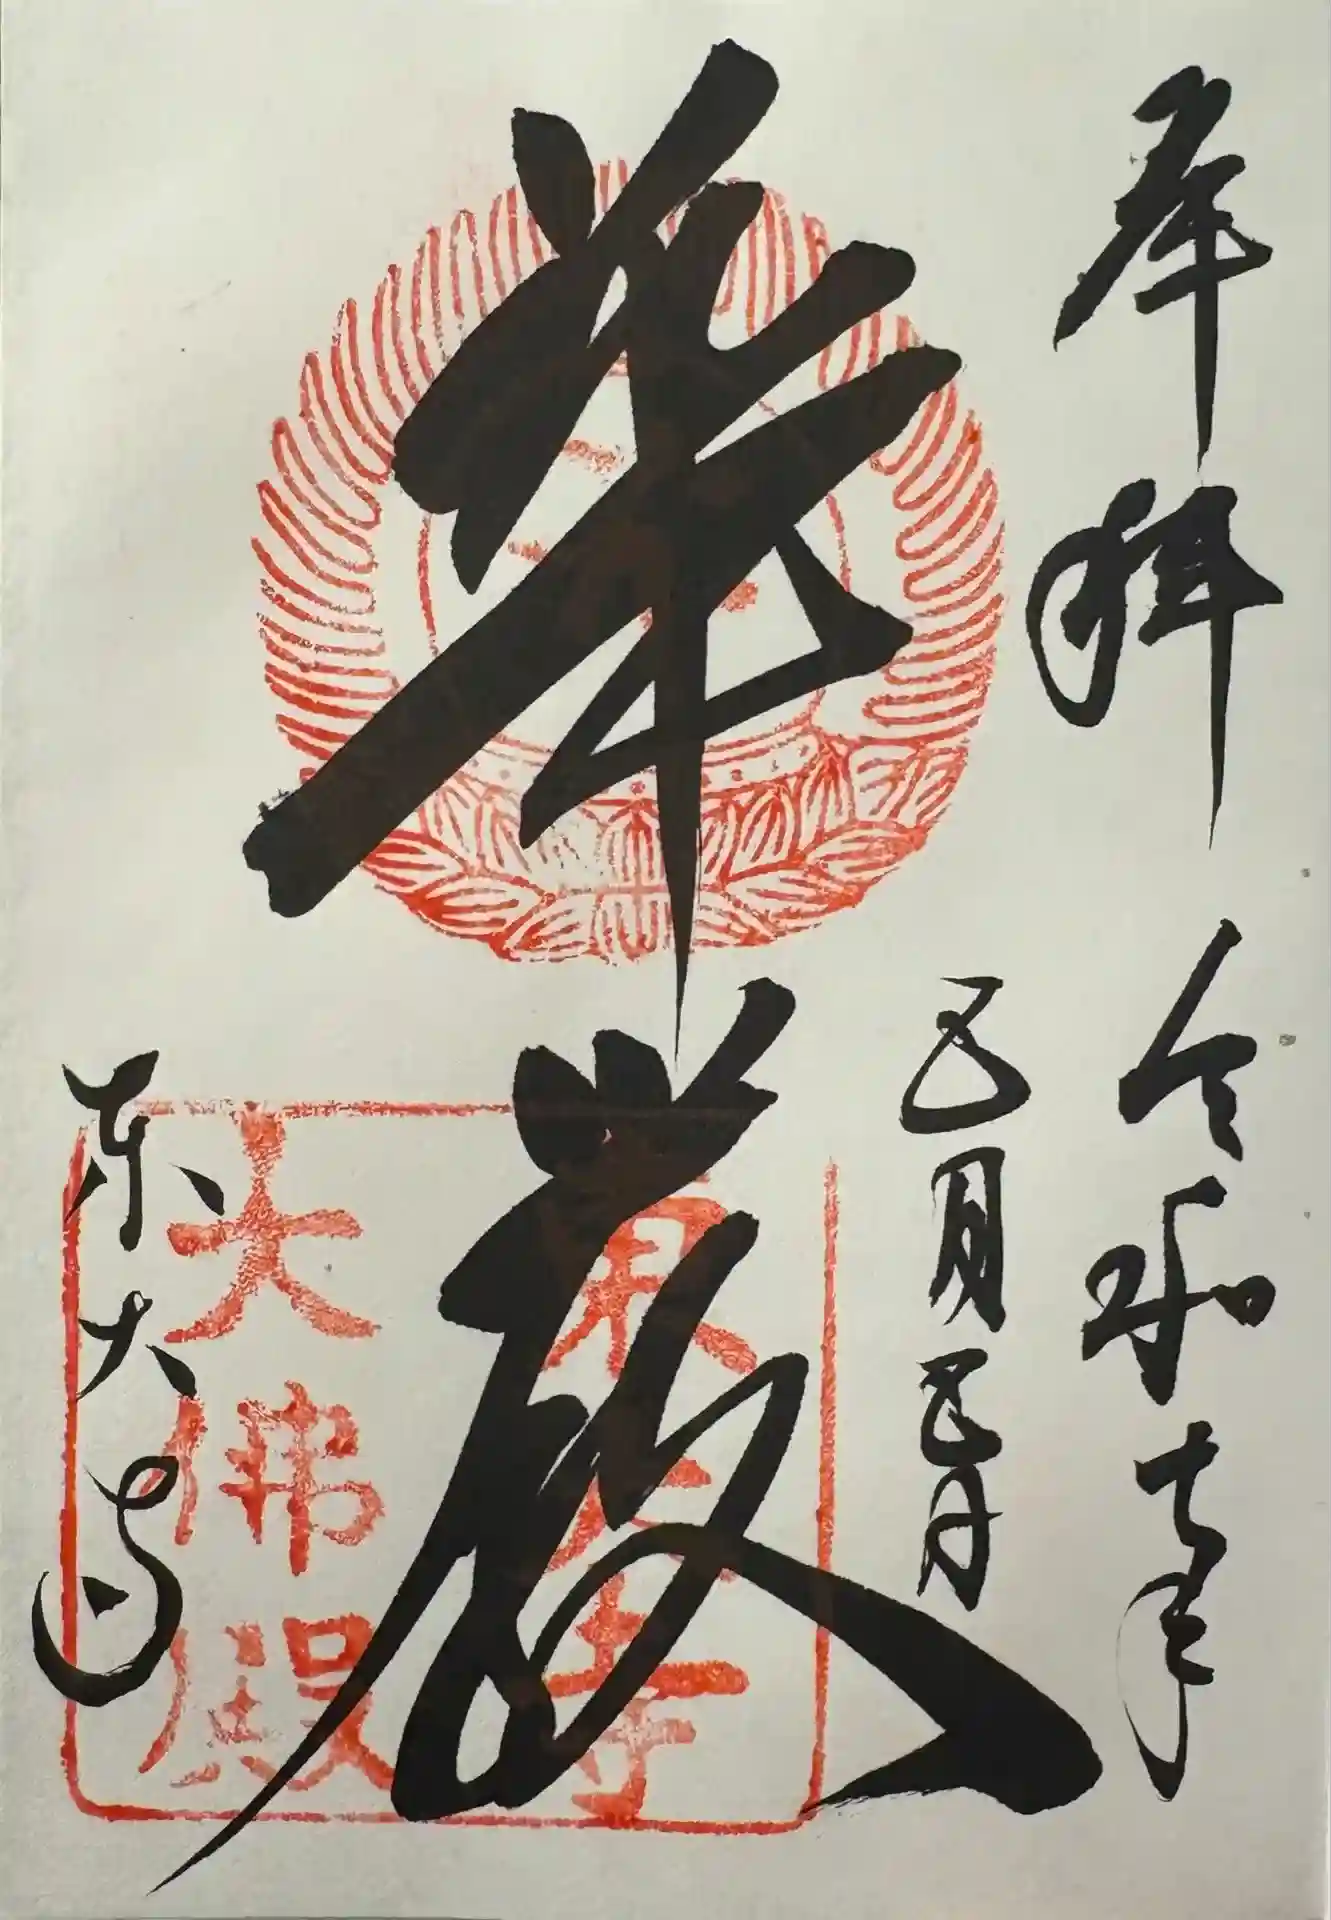 奉拝
令和七年
五月
華厳
東大寺
東大寺
大佛殿